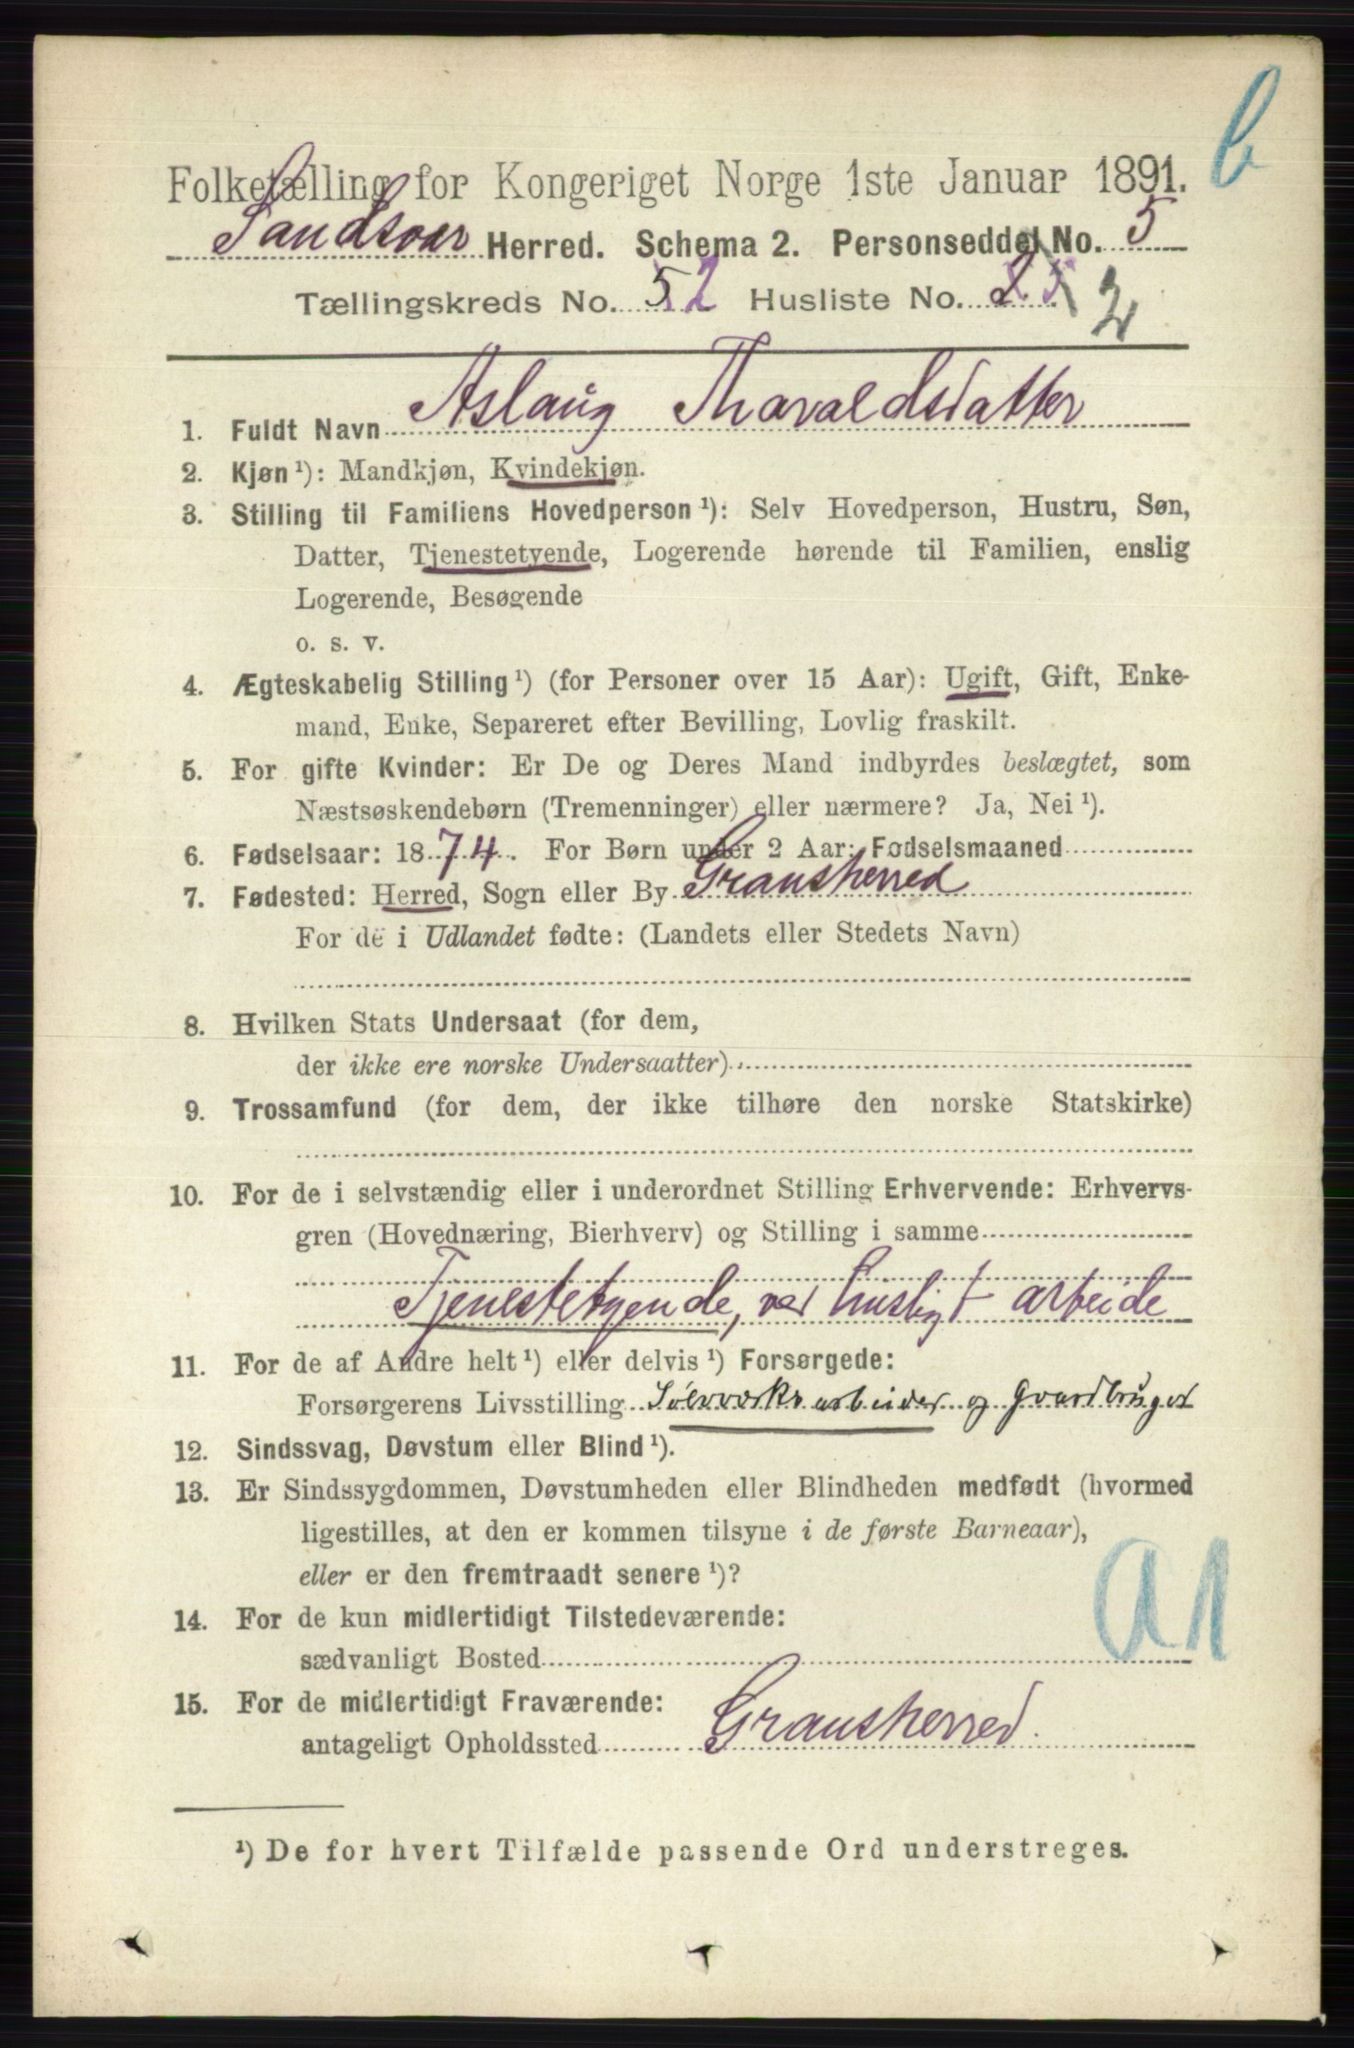 b
Folketælling for Kongeriget Norge 1ste Januar 1891.
Sandsvær Herred. Schema 2. Personseddel No. 5
Tællingskreds No. 52 Husliste No. 2
1. Fuldt Navn Aslaug Thoraldsdatter
2. Kjøn ¹): Mandkjøn, Kvindekjøn.
3. Stilling til Familiens Hovedperson ¹): Selv Hovedperson, Hustru, Søn,
Datter, Tjenestetyende, Logerende hørende til Familien, enslig
Logerende, Besøgende
o. s. v.
4. Ægteskabelig Stilling ¹) (for Personer over 15 Aar): Ugift, Gift, Enke-
mand, Enke, Separeret efter Bevilling, Lovlig fraskilt.
5. For gifte Kvinder: Er De og Deres Mand indbyrdes beslægtet, som
Næstsøskendebørn (Tremenninger) eller nærmere? Ja, Nei ¹).
6. Fødselsaar: 1874. For Børn under 2 Aar: Fødselsmaaned
7. Fødested: Herred, Sogn eller By Gransherred
For de i Udlandet fødte: (Landets eller Stedets Navn)
8. Hvilken Stats Undersaat (for dem,
der ikke ere norske Undersaatter)
9. Trossamfund (for dem, der ikke tilhøre den norske Statskirke)
10. For de i selvstændig eller i underordnet Stilling Erhvervende: Erhvervs-
gren (Hovednæring, Bierhverv) og Stilling i samme
Tjenestetyende, ved husligt arbeide
11. For de af Andre helt ¹) eller delvis ¹) Forsørgede:
Forsørgerens Livsstilling Sølvværksarbeider og Gaardbruger
12. Sindssvag, Døvstum eller Blind ¹).
13. Er Sindssygdommen, Døvstumheden eller Blindheden medfødt (hvormed
ligestilles, at den er kommen tilsyne i de første Barneaar),
eller er den fremtraadt senere ¹)?
a1
14. For de kun midlertidigt Tilstedeværende:
sædvanligt Bosted
15. For de midlertidigt Fraværende:
antageligt Opholdssted Gransherred.
¹) De for hvert Tilfælde passende Ord understreges.